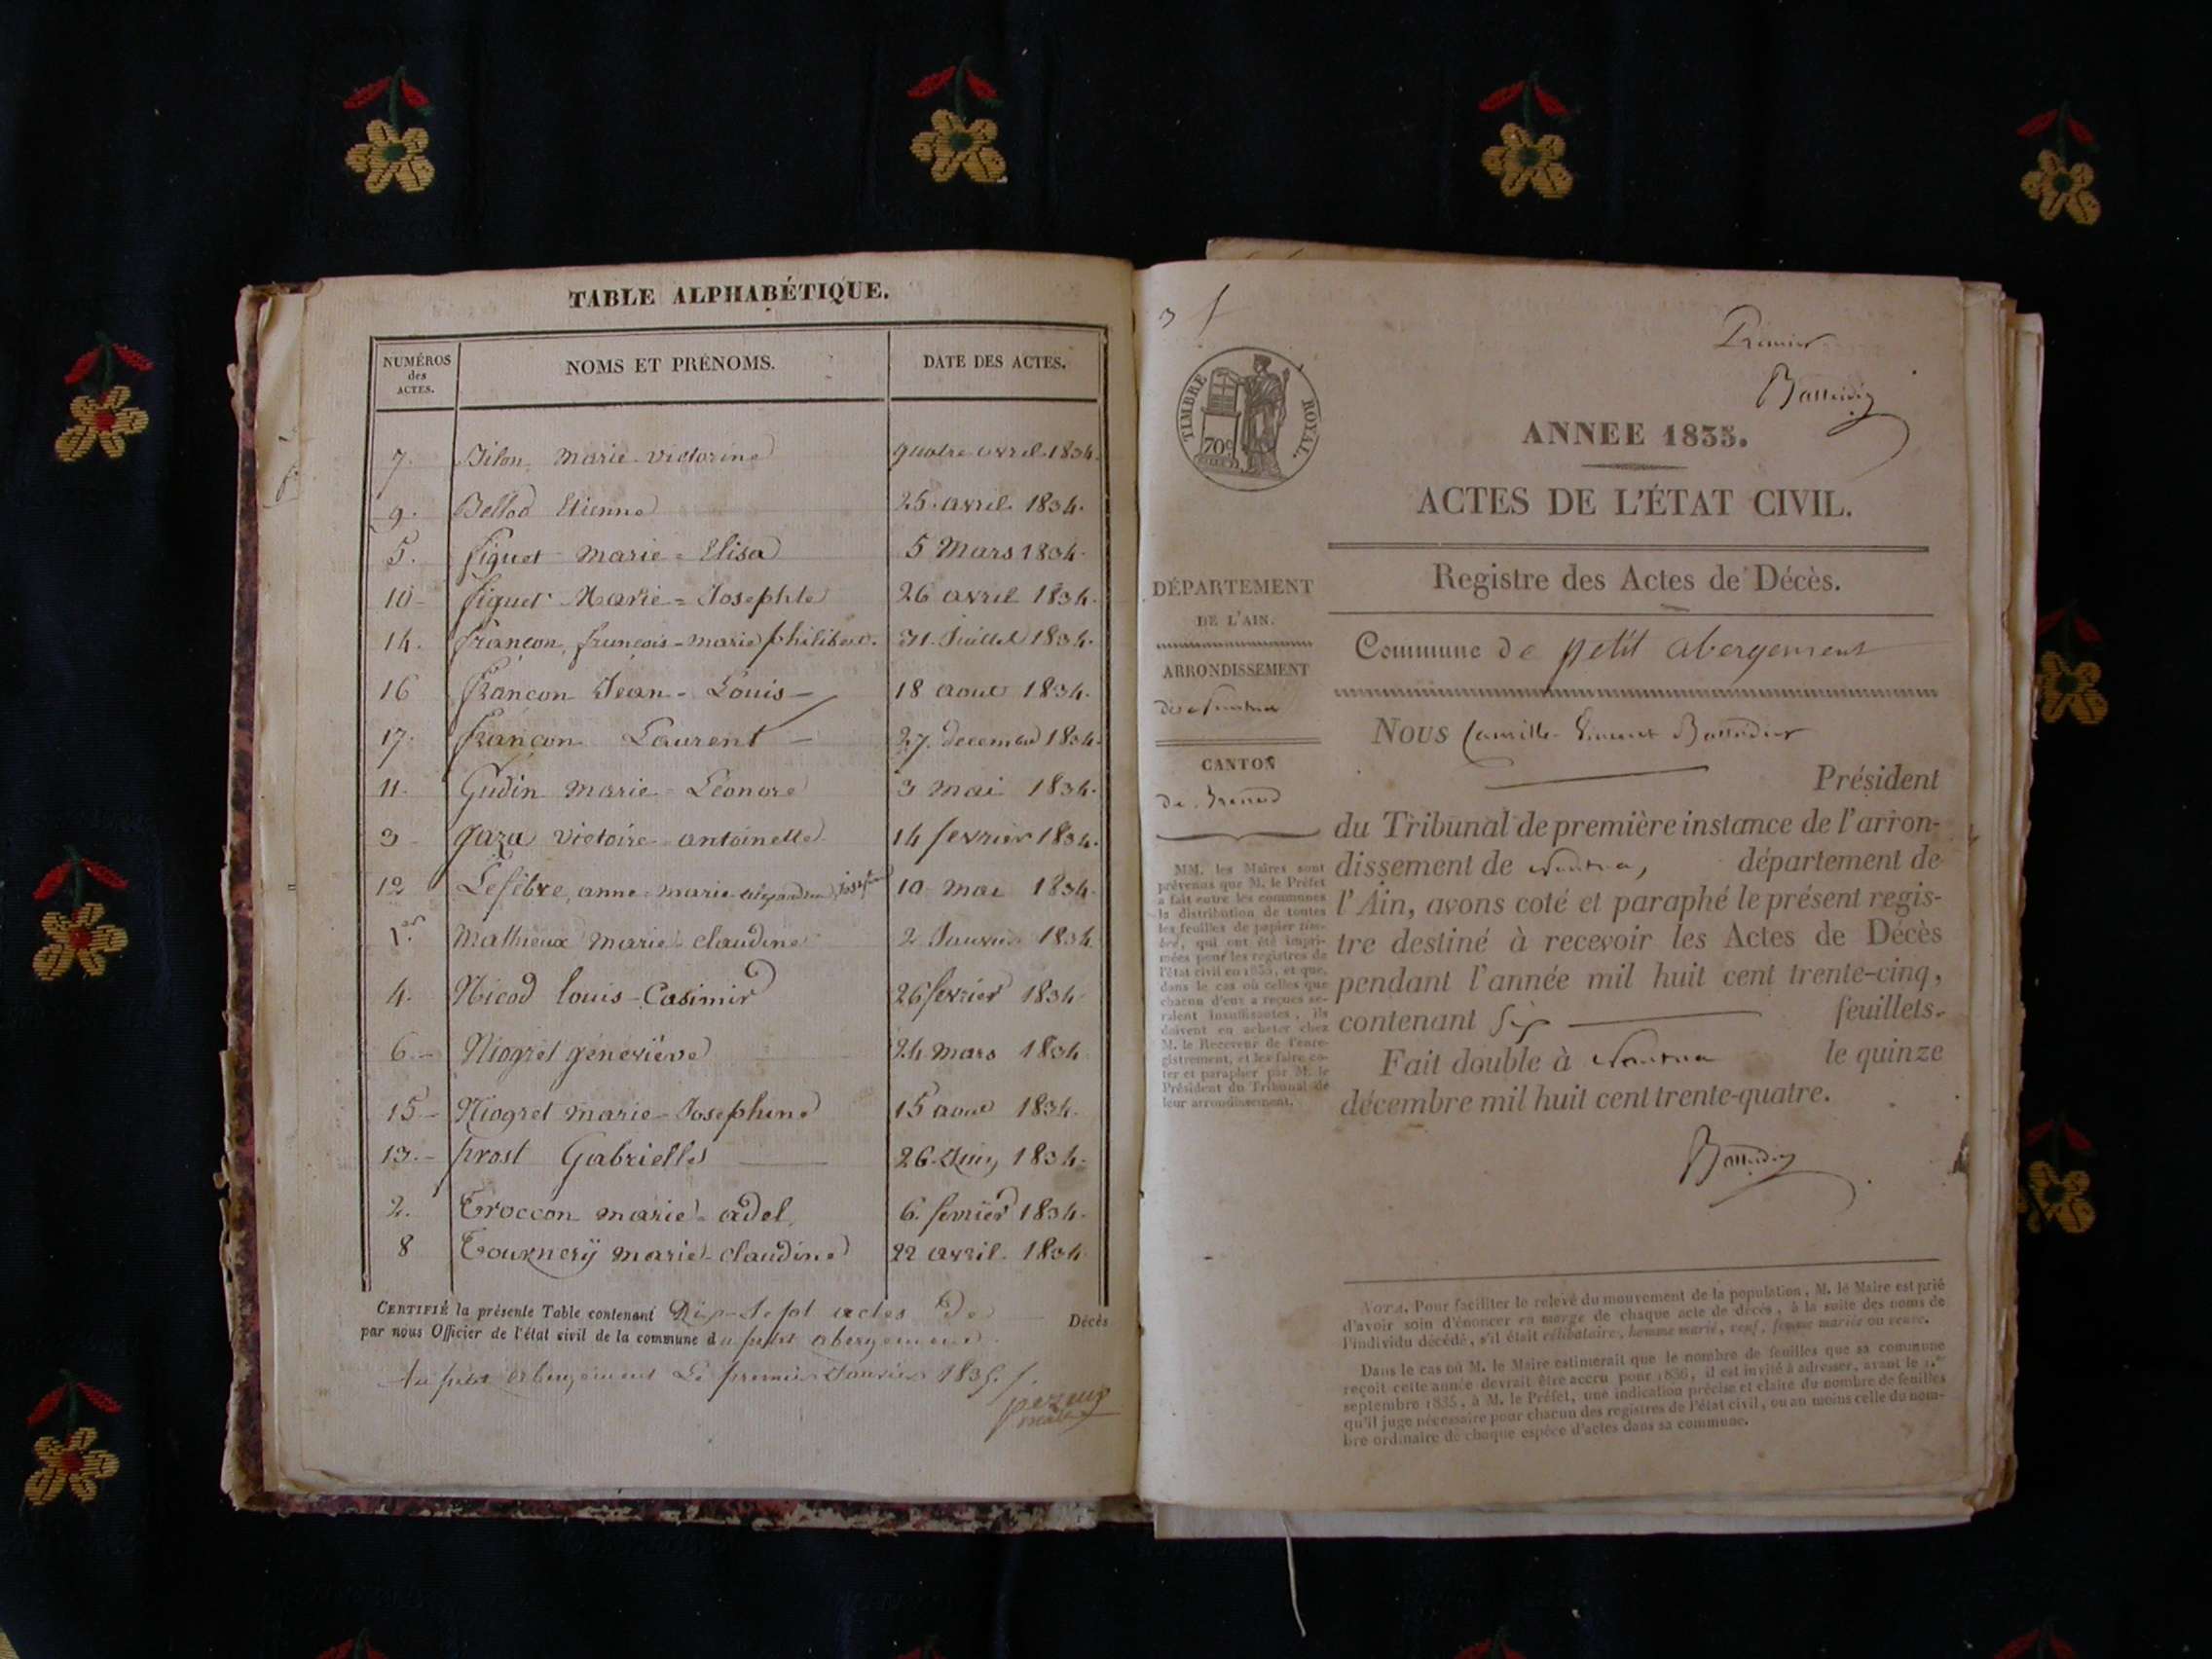 TABLE ALPHABÉTIQUE.
NUMÉROS des ACTES. NOMS ET PRÉNOMS. DATE DES ACTES.
7. marie-victorine quatre avril 1834.
9. Etienne 25. avril 1834.
5. figuet marie=Elisa 5 Mars 1834.
10 figuet Marie=Josephte 26 avril 1834.
14. françon, françois-marie philibert. 31. Juillet 1834.
16 françon Jean-Louis 18 aout 1834.
17. françon Laurent 27. decembre 1834.
11. Gudin marie-Léonore 3 mai 1834.
3 victoire antoinette 14 fevrier 1834.
12 Lefèbvre, anne-marie 10 mai 1834.
1.er Mathieux marie-claudine 2 Janvier 1834
4. Nicod louis-Casimir 26 fevrier 1834
6. Niogret géneviève 24 mars 1834
15 Niogret marie-Josephine 15 aout 1834.
13. prost Gabrielle 26. Juin 1834.
2. Troccon marie-adel, 6. fevrier 1834.
8 Tournery marie-claudine 22 avril 1834
CERTIFIÉ la présente Table contenant Dix-Sept actes de Décès
par nous Officier de l'état civil de la commune du petit abergement
Au petit abergement Le premier Janvier 1835.
3
Premier
TIMBRE ROYAL.
70c
ANNEE 1835.
ACTES DE L'ÉTAT CIVIL.
Registre des Actes de Décès.
Commune de petit abergement
DÉPARTEMENT
DE L'AIN.
ARRONDISSEMENT
de Nantua
CANTON
de Brenod
MM. les Maires sont
prévenus que M. le Préfet
a fait entre les communes
la distribution de toutes
les feuilles de papier tim-
bré, qui ont été impri-
mées pour les registres de
l'état civil en 1835, et que,
dans le cas où celles que
chacun d'eux a reçues se-
raient insuffisantes, ils
doivent en acheter chez
M. le Receveur de l'enre-
gistrement, et les faire co-
ter et parapher par M. le
Président du Tribunal de
leur arrondissement.
Nous Camille Vincent
Président
du Tribunal de première instance de l'arron-
dissement de Nantua, département de
l'Ain, avons coté et paraphé le présent regis-
tre destiné à recevoir les Actes de Décès
pendant l'année mil huit cent trente-cinq,
contenant six feuillets.
Fait double à Nantua le quinze
décembre mil huit cent trente-quatre.
NOTA. Pour faciliter le relevé du mouvement de la population, M. le Maire est prié
d'avoir soin d'énoncer en marge de chaque acte de décès, à la suite des noms de
l'individu décédé, s'il était célibataire, homme marié, veuf, femme mariée ou veuve.
Dans le cas où M. le Maire estimerait que le nombre de feuilles que sa commune
reçoit cette année devrait être accru pour 1836, il est invité à adresser, avant le 1.er
septembre 1835, à M. le Préfet, une indication précise et claire du nombre de feuilles
qu'il juge nécessaire pour chacun des registres de l'état civil, ou au moins celle du nom-
bre ordinaire de chaque espèce d'actes dans sa commune.